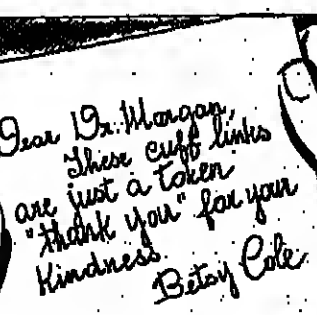 Dear Dr. Morgan,
These cuff links
are just a token
"thank you" for your
Kindness.
Betsy Cole